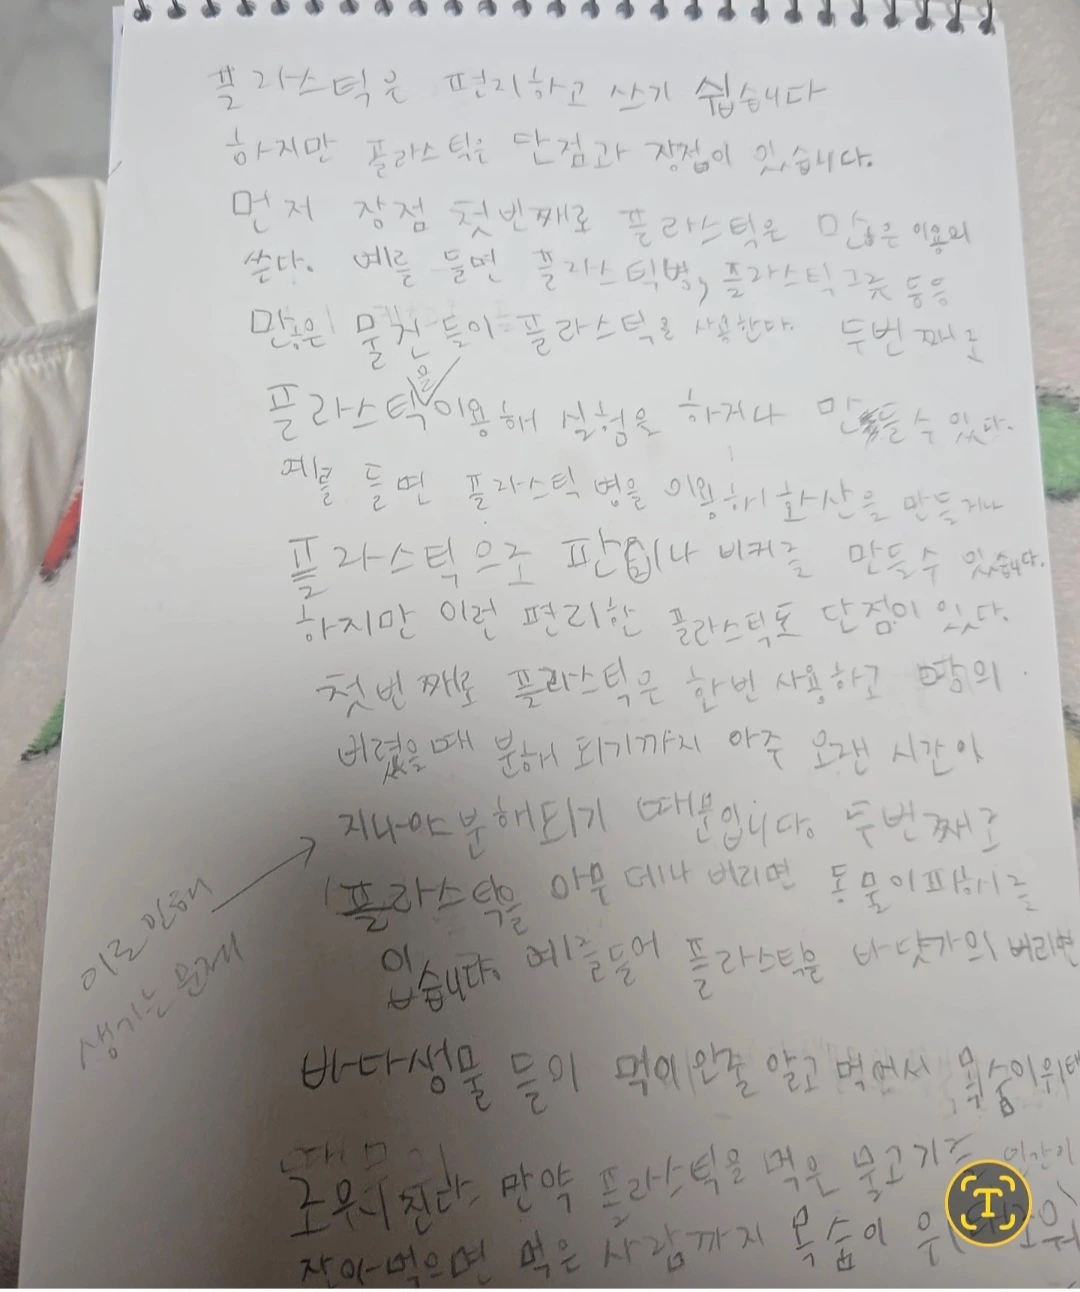 플라스틱은 편리하고 쓰기 쉽습니다
하지만 플라스틱은 단점과 장점이 있습니다.
먼저 장점 첫번째로 플라스틱은 많은 이용의
쓴다. 예를 들면 플라스틱병, 플라스틱그릇 등등
많은 물건들이 플라스틱를 사용한다. 두번째로
플라스틱을 이용해 실험을 하거나 만들수 있다.
예를 들면 플라스틱 병을 이용해 화산을 만들거나
플라스틱으로 이나 비커를 만들수 있습니다.
하지만 이런 편리한 플라스틱도 단점이 있다.
첫번째로 플라스틱은 한번 사용하고 땅의
버렸을때 분해 되기까지 아주 오랜 시간이
지나야 분해되기 때문입니다. 두번째로
플라스틱을 아무 데나 버리면 동물이 피해를
입습니다. 예를들어 플라스틱을 바닷가의 버리면
이로 인해
생기는 문제
바다생물 들이 먹이인줄 알고 먹어서 목숨이 위태
만약 플라스틱을 먹은 물고기를 인간이
잡아먹으면 먹은 사람까지 목숨이